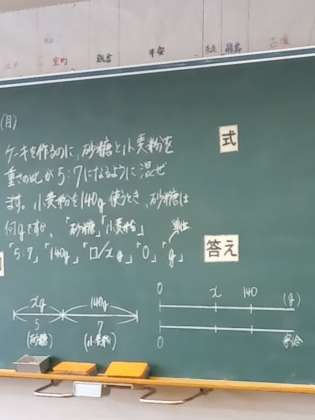 室町
鎌倉
平安
(月)
ケーキを作るのに、砂糖と小麦粉を
重さの比が5:7になるように混ぜ
ます。小麦粉を140g使うとき、砂糖は
何gですか。「砂糖」「小麦粉」 単位
「5:7」「140g」「□/xg」「0」「g」
式
答え
xg 140g
5 7
(砂糖) (小麦粉)
0 x 140 (g)
0 割合